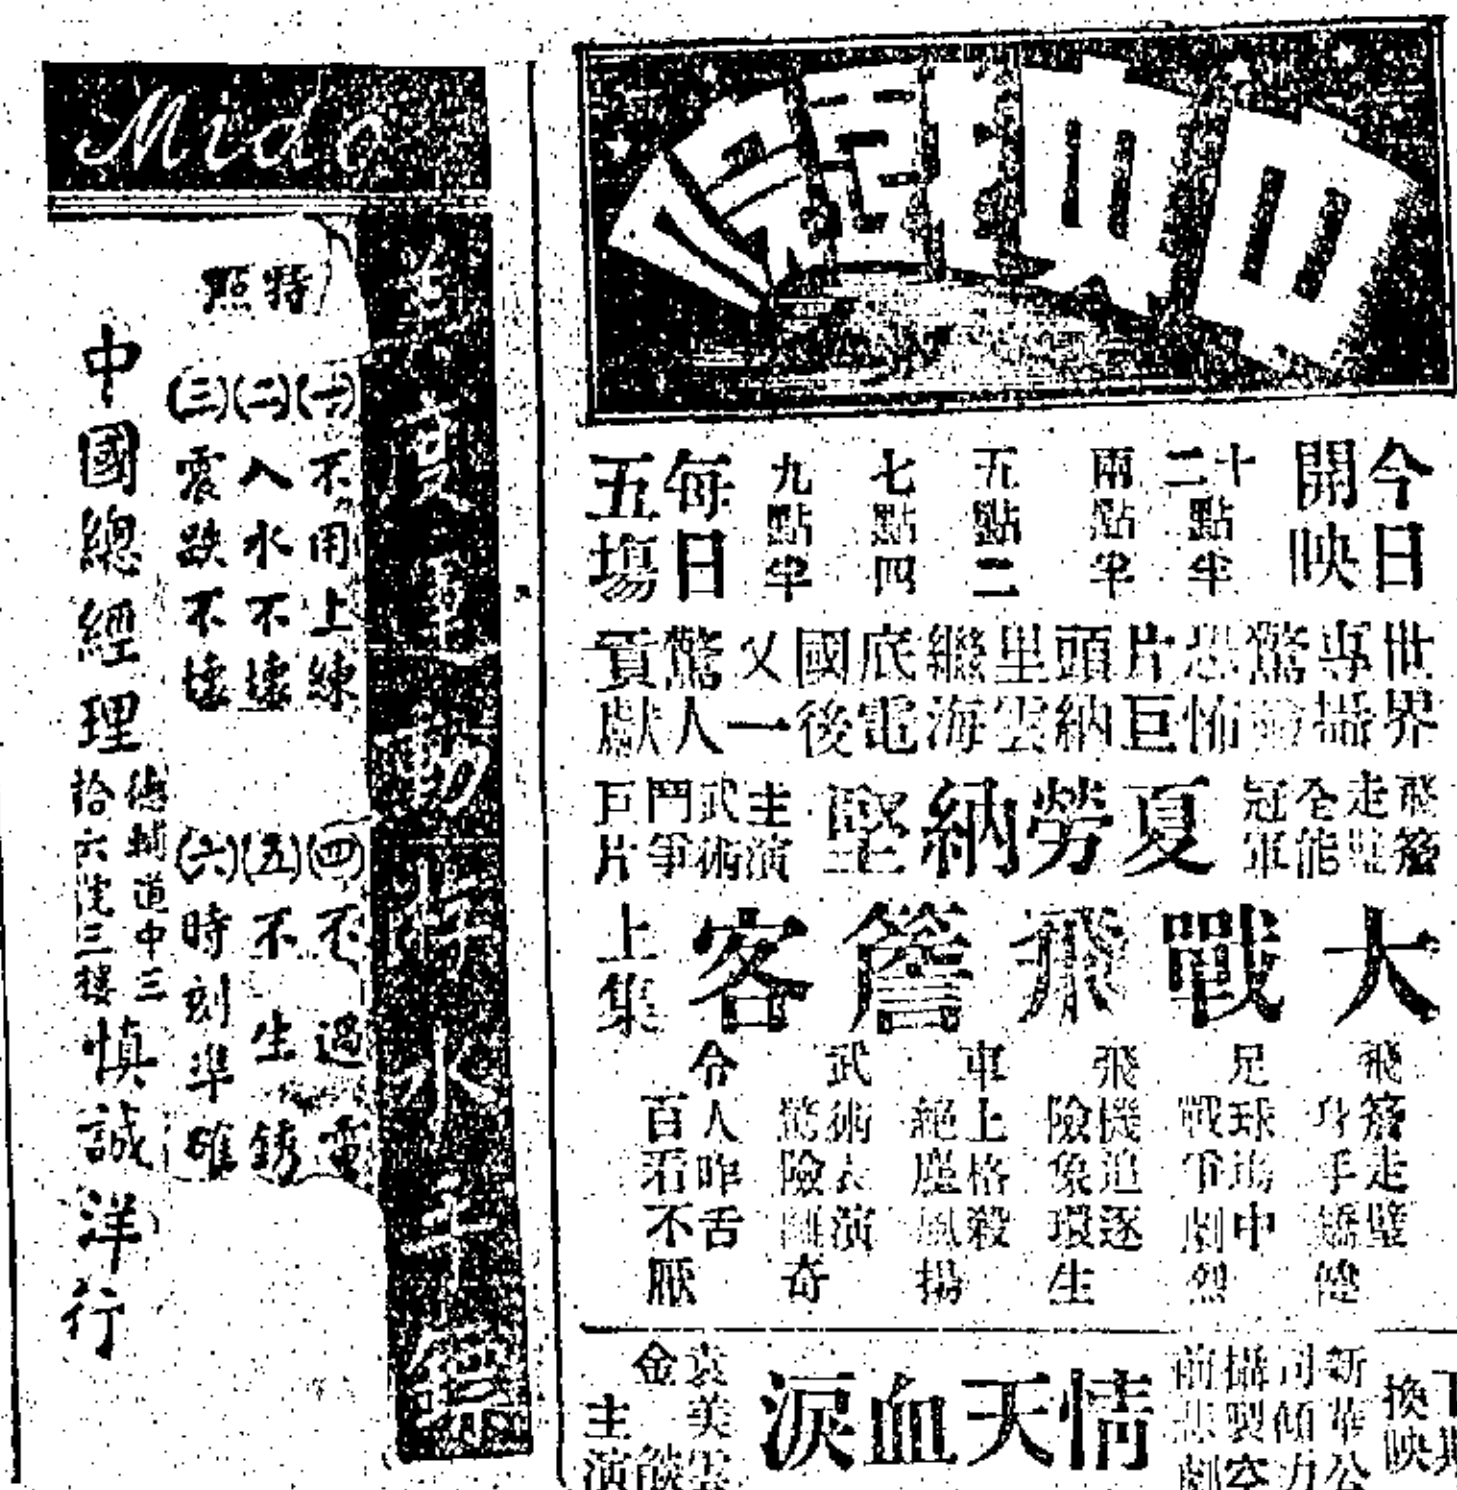 今日開映
十二點半
兩點半
五點二
七點四
九點半
每日五場
世界
專攝
驚
恐怖
片巨
頭納
里雲
繼海
底電
國後
又一
驚人
貢獻
飛簷走壁全能冠軍
夏勞納堅
主演
武術鬥爭巨片
大戰飛簷客
上集
飛簷走壁身手矯健
足球場中戰爭劇烈
飛機追逐險象環生
車上格殺絕塵風揚
武術表演驚險
奇
令人咋舌百看不厭
換映
新華公司傾力攝製空前悲劇
情天血淚
袁美雲
金燄
主演
Mido
動
水
特點
(一)不用上練
(二)入水不壞
(三)震跌不壞
(四)不過電
(五)不生銹
(六)時刻準確
中國總經理
德輔道中三
拾六號三樓
慎誠洋行